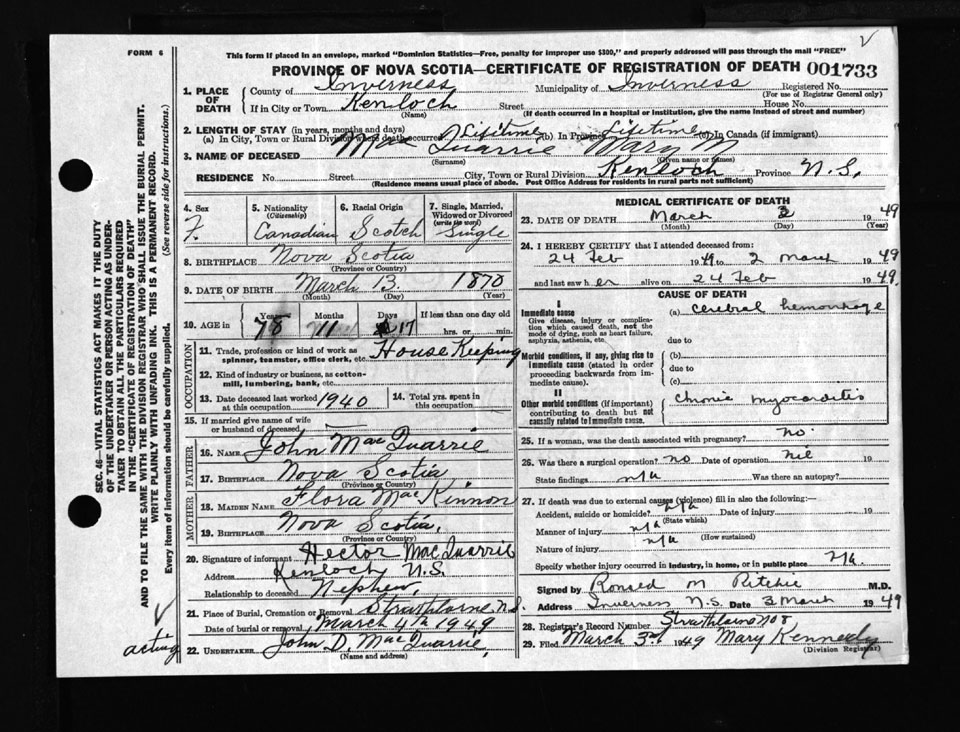 FORM 6
This form if placed in an envelope, marked "Dominion Statistics—Free, penalty for improper use $300," and properly addressed will pass through the mail "FREE"
PROVINCE OF NOVA SCOTIA—CERTIFICATE OF REGISTRATION OF DEATH 001733
1. PLACE OF DEATH County of Inverness Municipality of Inverness Registered No.
(For use of Registrar General only)
If in City or Town Kenloch Street House No.
(Name) (If death occurred in a hospital or institution, give the name instead of street and number)
2. LENGTH OF STAY (in years, months and days)
(a) In City, Town or Rural Division where death occurred Lifetime (b) In Province Lifetime (c) In Canada (if immigrant)
3. NAME OF DECEASED Mac Quarrie Mary M
(Surname) (Given name or names)
RESIDENCE No. Street City, Town or Rural Division Kenloch Province N.S.
(Residence means usual place of abode. Post Office Address for residents in rural parts not sufficient)
4. Sex F.
5. Nationality (Citizenship) Canadian
6. Racial Origin Scotch
7. Single, Married, Widowed or Divorced (write the word) Single
8. BIRTHPLACE Nova Scotia
(Province or Country)
9. DATE OF BIRTH March 13 1870
(Month) (Day) (Year)
10. AGE in Years 78 Months 11 Days 17 If less than one day old
hrs. or min.
OCCUPATION
11. Trade, profession or kind of work as spinner, teamster, office clerk, etc. House Keeping
12. Kind of industry or business, as cotton-mill, lumbering, bank, etc.
13. Date deceased last worked at this occupation 1940
14. Total yrs. spent in this occupation
15. If married give name of wife or husband of deceased
FATHER
16. NAME John Mac Quarrie
17. BIRTHPLACE Nova Scotia
(Province or Country)
MOTHER
18. MAIDEN NAME Flora Mac Kinnon
19. BIRTHPLACE Nova Scotia,
(Province or Country)
20. Signature of informant Hector Mac Quarrie
Address Kenloch, N.S.
Relationship to deceased Nephew,
21. Place of Burial, Cremation or Removal Strathlorne N.S.
Date of burial or removal March 4th 1949
22. UNDERTAKER John D. Mac Quarrie,
(Name and address)
MEDICAL CERTIFICATE OF DEATH
23. DATE OF DEATH March 19 49
(Month) (Day) (Year)
24. I HEREBY CERTIFY that I attended deceased from:
24 Feb 19 49 to 2 March 19 49
and last saw h er alive on 24 Feb 19 49.
CAUSE OF DEATH
I
Immediate cause
Give disease, injury or complication which caused death, not the mode of dying, such as heart failure, asphyxia, asthenia, etc.
(a) cerebral hemorrhage
due to
Morbid conditions, if any, giving rise to immediate cause (stated in order proceeding backwards from immediate cause).
(b)
due to
(c)
II
Other morbid conditions (if important) contributing to death but not causally related to immediate cause.
chronic myocarditis
25. If a woman, was the death associated with pregnancy? no.
26. Was there a surgical operation? no Date of operation nil 19
State findings n/a Was there an autopsy?
27. If death was due to external causes (violence) fill in also the following:—
Accident, suicide or homicide? n/a Date of injury 19
(State which)
Manner of injury n/a
(How sustained)
Nature of injury n/a
Specify whether injury occurred in industry, in home, or in public place n/a.
Signed by Ronald M Ritchie M.D.
Address Inverness N.S. Date 3 March 19 49
28. Registrar's Record Number Strathlorne 708
29. Filed March 3rd 1949 Mary Kennedy
(Division Registrar)
SEC. 46—VITAL STATISTICS ACT MAKES IT THE DUTY
OF THE UNDERTAKER OR PERSON ACTING AS UNDER-
TAKER TO OBTAIN ALL THE PARTICULARS REQUIRED
IN THE "CERTIFICATE OF REGISTRATION OF DEATH"
AND TO FILE THE SAME WITH THE DIVISION REGISTRAR WHO SHALL ISSUE THE BURIAL PERMIT.
WRITE PLAINLY WITH UNFADING INK. THIS IS A PERMANENT RECORD.
Every item of information should be carefully supplied. (See reverse side for instructions.)
acting